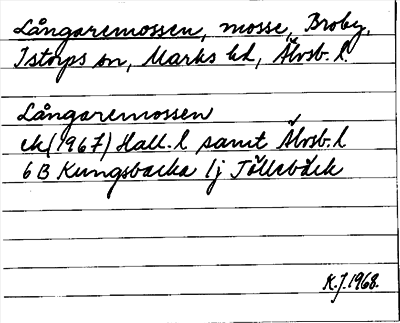 Långaremossen, mosse, Broby,
Istorps sn, Marks hd, Älvsb. l.
Långaremossen
ek (1967) Hall. l samt Älvsb. l
6 B Kungsbacka 1j Töllebäck
K.J. 1968.